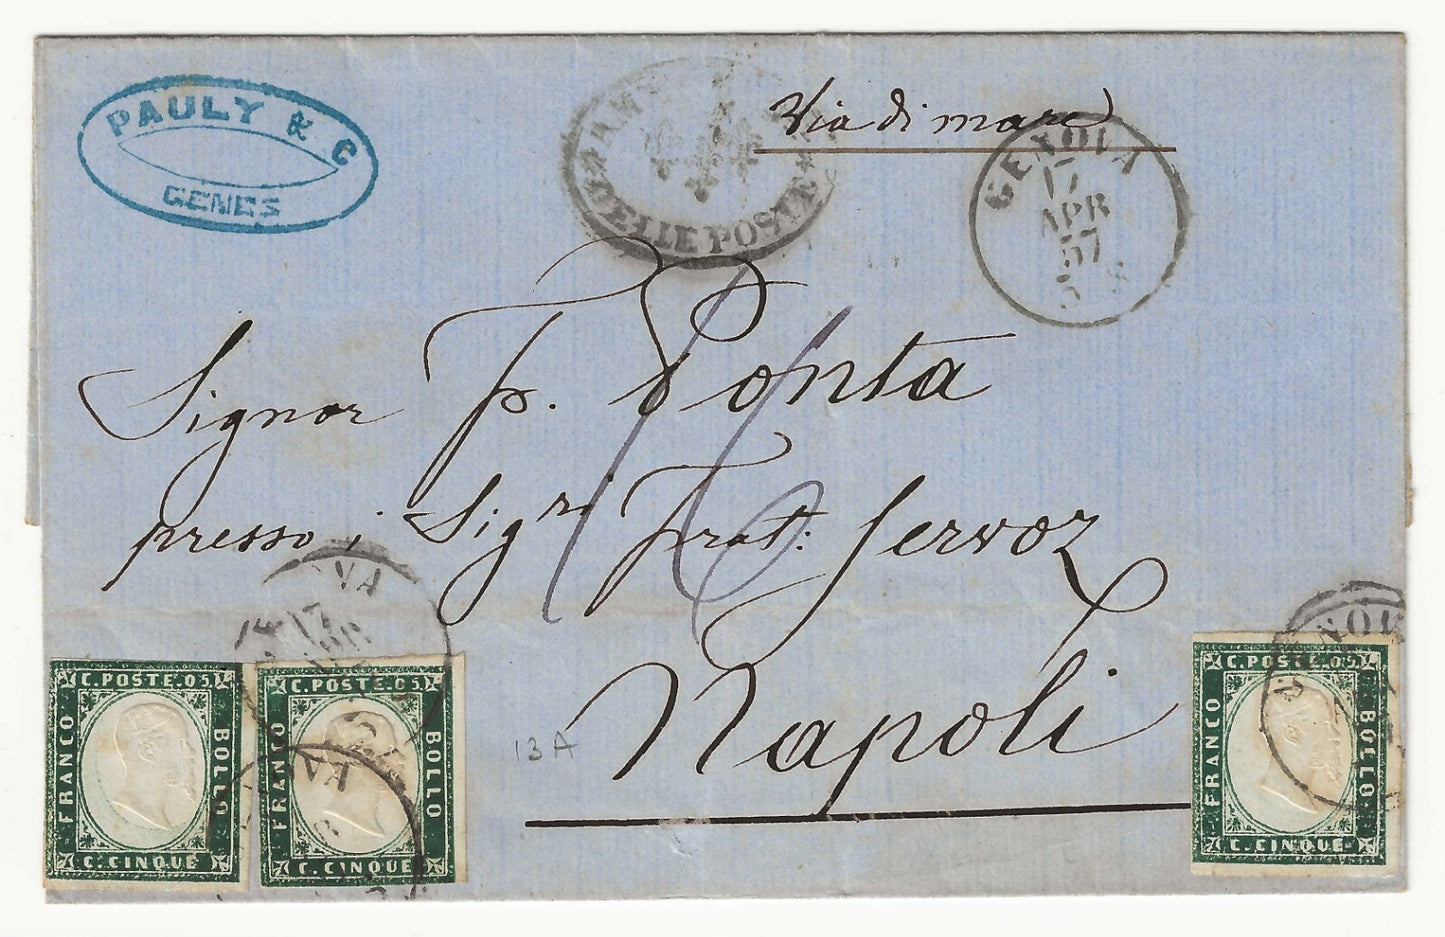 PAULY & C
GENES
DELLE POSTE
Via di mare
GENOVA
17
APR
57
Signor F. Ponta
presso i Sig.ri Frat: Servoz
Napoli
13A
C. POSTE. 05
FRANCO
BOLLO
C. CINQUE
C. POSTE. 05
FRANCO
BOLLO
C. CINQUE
C. POSTE. 05
FRANCO
BOLLO
C. CINQUE